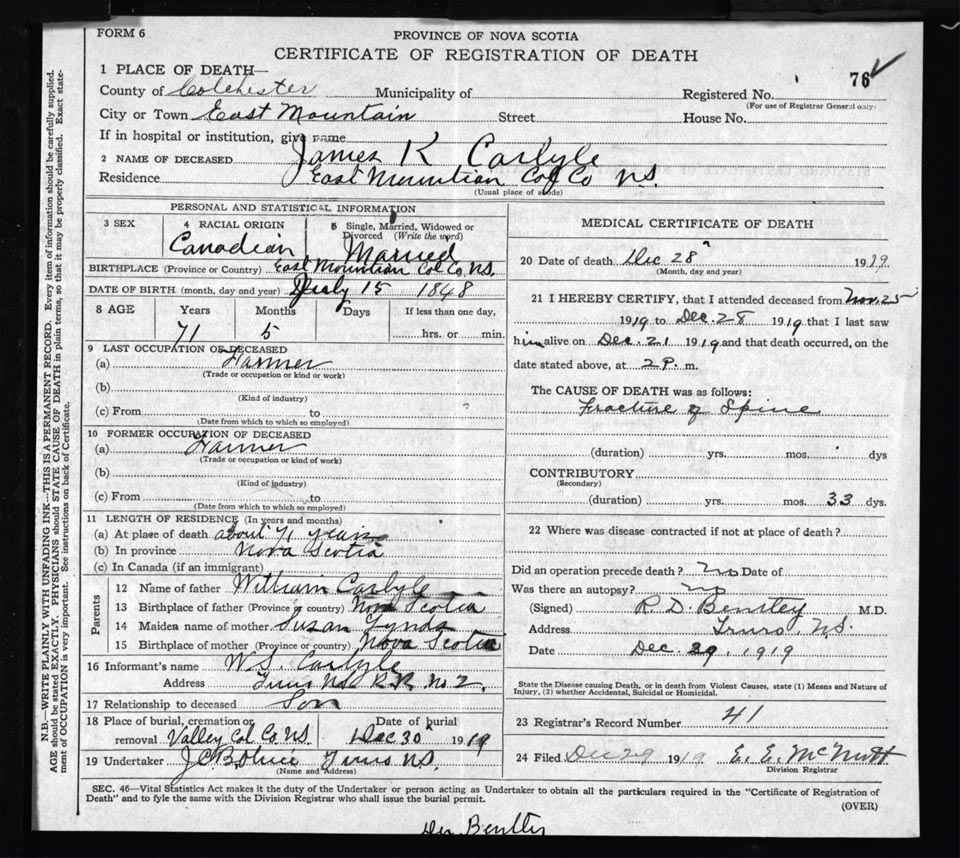 FORM 6
PROVINCE OF NOVA SCOTIA
CERTIFICATE OF REGISTRATION OF DEATH
76
1 PLACE OF DEATH—
County of Colchester Municipality of Registered No.
(For use of Registrar General only)
City or Town East Mountain Street House No.
If in hospital or institution, give name
2 NAME OF DECEASED James K Carlyle
Residence East Mountian Col Co N.S.
(Usual place of abode)
PERSONAL AND STATISTICAL INFORMATION
3 SEX
4 RACIAL ORIGIN
Canadian
5 Single, Married, Widowed or
Divorced (Write the word)
Married
BIRTHPLACE (Province or Country) East Mountian Col Co. N.S.
DATE OF BIRTH (month, day and year) July 15 1848
8 AGE Years Months Days If less than one day,
71 5 hrs. or min.
9 LAST OCCUPATION OF DECEASED
(a) Farmer
(Trade or occupation or kind or work)
(b)
(Kind of industry)
(c) From to
(Date from which to which so employed)
10 FORMER OCCUPATION OF DECEASED
(a) Farmer
(Trade or occupation or kind of work)
(b)
(Kind of industry)
(c) From to
(Date from which to which so employed)
11 LENGTH OF RESIDENCE (In years and months)
(a) At place of death about 71 years
(b) In province Nova Scotia
(c) In Canada (if an immigrant)
Parents
12 Name of father William Carlyle
13 Birthplace of father (Province or country) Nova Scotia
14 Maiden name of mother Susan Lynds
15 Birthplace of mother (Province or country) Nova Scotia
16 Informant's name W.S. Carlyle
Address Truro N.S. R.R. No 2.
17 Relationship to deceased Son
18 Place of burial, cremation or
removal Valley Col Co. N.S.
Date of burial
Dec 30 1919
19 Undertaker Truro N.S.
(Name and Address)
MEDICAL CERTIFICATE OF DEATH
20 Date of death Dec 28 1919
(Month, day and year)
21 I HEREBY CERTIFY, that I attended deceased from Nov. 25
1919 to Dec. 28 1919 that I last saw
him alive on Dec. 21 1919 and that death occurred, on the
date stated above, at 2 P. m.
The CAUSE OF DEATH was as follows:
Fracture of Spine
(duration) yrs. mos. dys
CONTRIBUTORY
(Secondary)
(duration) yrs. mos. 33 dys.
22 Where was disease contracted if not at place of death?
Did an operation precede death? No Date of
Was there an autopsy? no
(Signed) R. D. Bentley M.D.
Address Truro, N.S.
Date Dec. 29, 1919
State the Disease causing Death, or in death from Violent Causes, state (1) Means and Nature of
Injury, (2) whether Accidental, Suicidal or Homicidal.
23 Registrar's Record Number 41
24 Filed Dec 29 1919 E. E. McNutt
Division Registrar
SEC. 46—Vital Statistics Act makes it the duty of the Undertaker or person acting as Undertaker to obtain all the particulars required in the "Certificate of Registration of
Death" and to fyle the same with the Division Registrar who shall issue the burial permit.
(OVER)
Dr Bentley
N.B.—WRITE PLAINLY WITH UNFADING INK—THIS IS A PERMANENT RECORD. Every item of information should be carefully supplied.
AGE should be stated EXACTLY. PHYSICIANS should STATE CAUSE OF DEATH in plain terms, so that it may be properly classified. Exact state-
ment of OCCUPATION is very important. See instructions on back of Certificate.